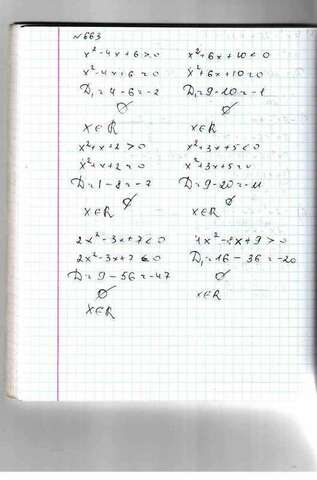 №663
x²-4x+6>0
x²-4x+6=0
D₁=4-6=-2
∅
x∈R
x²+6x+10<0
x²+6x+10=0
D₁=9-10=-1
∅
x∈R
x²+x+2>0
x²+x+2=0
D=1-8=-7
∅
x∈R
x²+3x+5<0
x²+3x+5=0
D=9-20=-11
∅
x∈R
2x²-3x+7<0
2x²-3x+7=0
D=9-56=-47
∅
x∈R
4x²-8x+9>0
D₁=16-36=-20
∅
x∈R